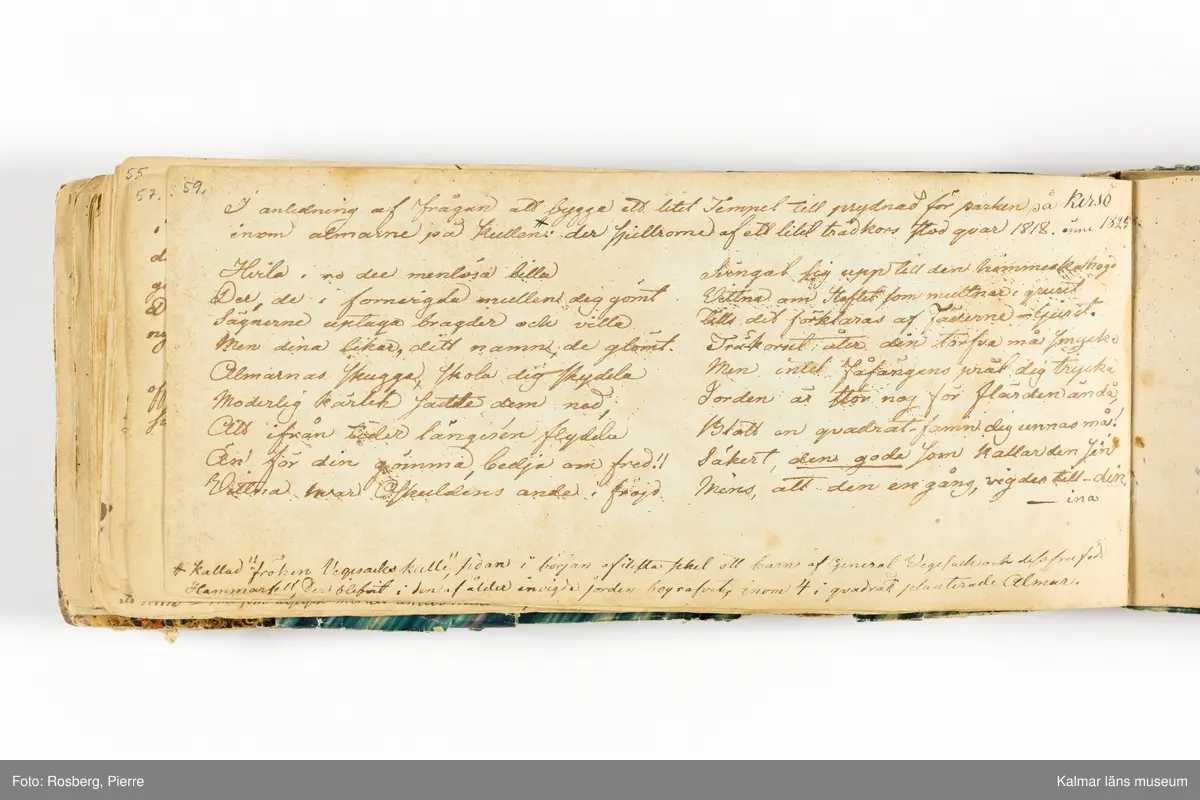 55
57.
59.
I anledning af frågan att bygga ett litet Tempel till prydnad för parken på Kersö
inom almarne på Kullen # der spillrorne af ett litet trädkors stod qvar 1818. 1825
Hvila i ro det menlösa lilla
Der, de i fornvigda mullen dig gömt.
Sägnerne upptaga bragder och villa
Men dina likar, ditt namn, de glömt.
Almarnas skugga, skola dig skydda
Moderlig kärlek satte dem ned,
Att ifrån tider längesen flydda
Än! för din gömma, bedja om fred!!
Vittna hvar Oskuldens ande i fröjd
Svingat sig upp till den himmelska höjd
Vettna om Stoftet som multnar i gruset
Tills det förklaras af Faderns ljuset.
Träkorset åter den torfva må smycka
Men intet fåfängans prål dig trycka
Jorden är stor nog för flärden ändå,
Blott en qvadrat-famn dig unnas må!
Säkert, den goda som kallar den sin
Mins, att den en gång, vigdes till – din.
— ina
# Kallad "fröken Vegesacks kulle", sedan i början af detta sekel ett barn af General Vegesack och dess fru född
Hammarfelt, Der blifvit i den af ålder invigda jorden begrafvet, inom 4 i qvadrat planterade Almar.
Foto: Rosberg, Pierre
Kalmar läns museum